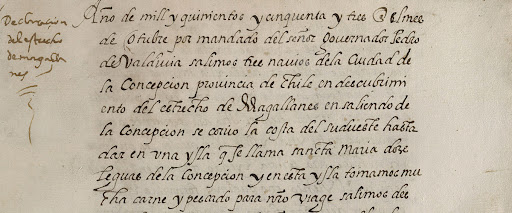 Declaracion
del estrecho
de magalla
nes
Año de mill y quinientos y cinquenta y tres El mes
de Otubre por mandado del señor Governador Pedro
de Valdivia salimos tres navios dela Ciudad de
la Concepcion provincia de Chile en descubrimi
ento del estrecho de Magallanes en saliendo de
la Concepcion se corrio la costa del sudueste hasta
dar en una ysla q se llama sancta Maria doze
leguas dela Concepcion y en esta ysla tomamos mu
cha carne y pescado para nro viage salimos de